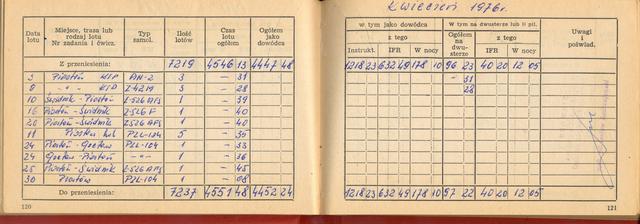 Kwiecień 1976r.
Data lotu | Miejsce, trasa lub rodzaj lotu Nr zadania i ćwicz. | Typ samol. | Ilość lotów | Czas lotu ogółem | Ogółem jako dowódca
w tym jako dowódca | W tym na dwusterze lub II pil. | Uwagi i poświad.
z tego | Ogółem na dwusterze | z tego
Instrukt. | IFR | W nocy | IFR | W nocy
Z przeniesienia: 7219 4546 13 4447 48 1218 23 632 49 178 10 96 23 40 20 12 05
3 Piastów KTP AN-2 3 — 31 — 31
9 -"- 3 — 28 28
10 Świdnik - Piastów Z-526 AFS 1 — 39
16 Piastów - Świdnik Z-526 F 1 — 40
20 Piastów - Świdnik Z-526 AFS 1 — 40
11 Piastów PZL-104 5 — 35
24 Piastów - PZL-104 1 — 33
24 - Piastów -"- 1 — 36
25 Piastów - Świdnik Z-526 AFS 1 — 45
30 Piastów PZL-104 1 — 08
Do przeniesienia: 7237 4551 48 4452 24 1218 23 632 49 178 10 97 22 40 20 12 05
120
121